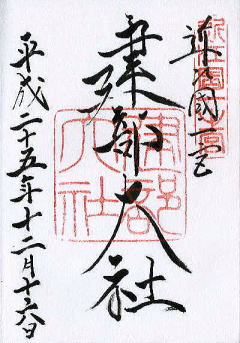 近江國一之宮
建部大社
平成二十五年十二月十六日
近江國一之宮
建部大社